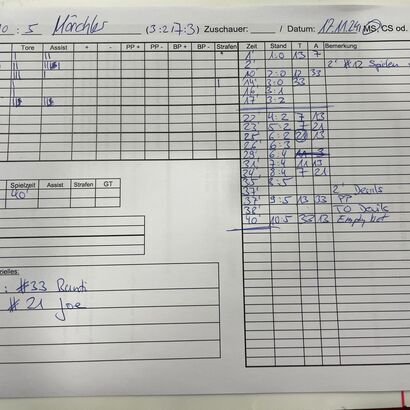 10 : 5 (3:2/7:3) Zuschauer: / Datum: 17.11.24 MS, CS od.
Tore Assist + - PP + PP - BP + BP - Strafen
Zeit Stand T A Bemerkung
1' 1:0 13 7
2' 2' #12
10' 2:0 12 33
14' 3:0 33
16' 3:1
17' 3:2
22' 4:2 7 13
23' 5:2 7 21
25' 6:2 21 13
26' 6:3
29' 6:4
31' 7:4 11 13
34' 8:4 7 21
35' 8:5
37' 2' Devils
37' 9:5 13 33 PP
38' TO Devils
40' 10:5 33 13 Empty Net
Spielzeit Assist Strafen GT
40'
: #33
# 21 Joe